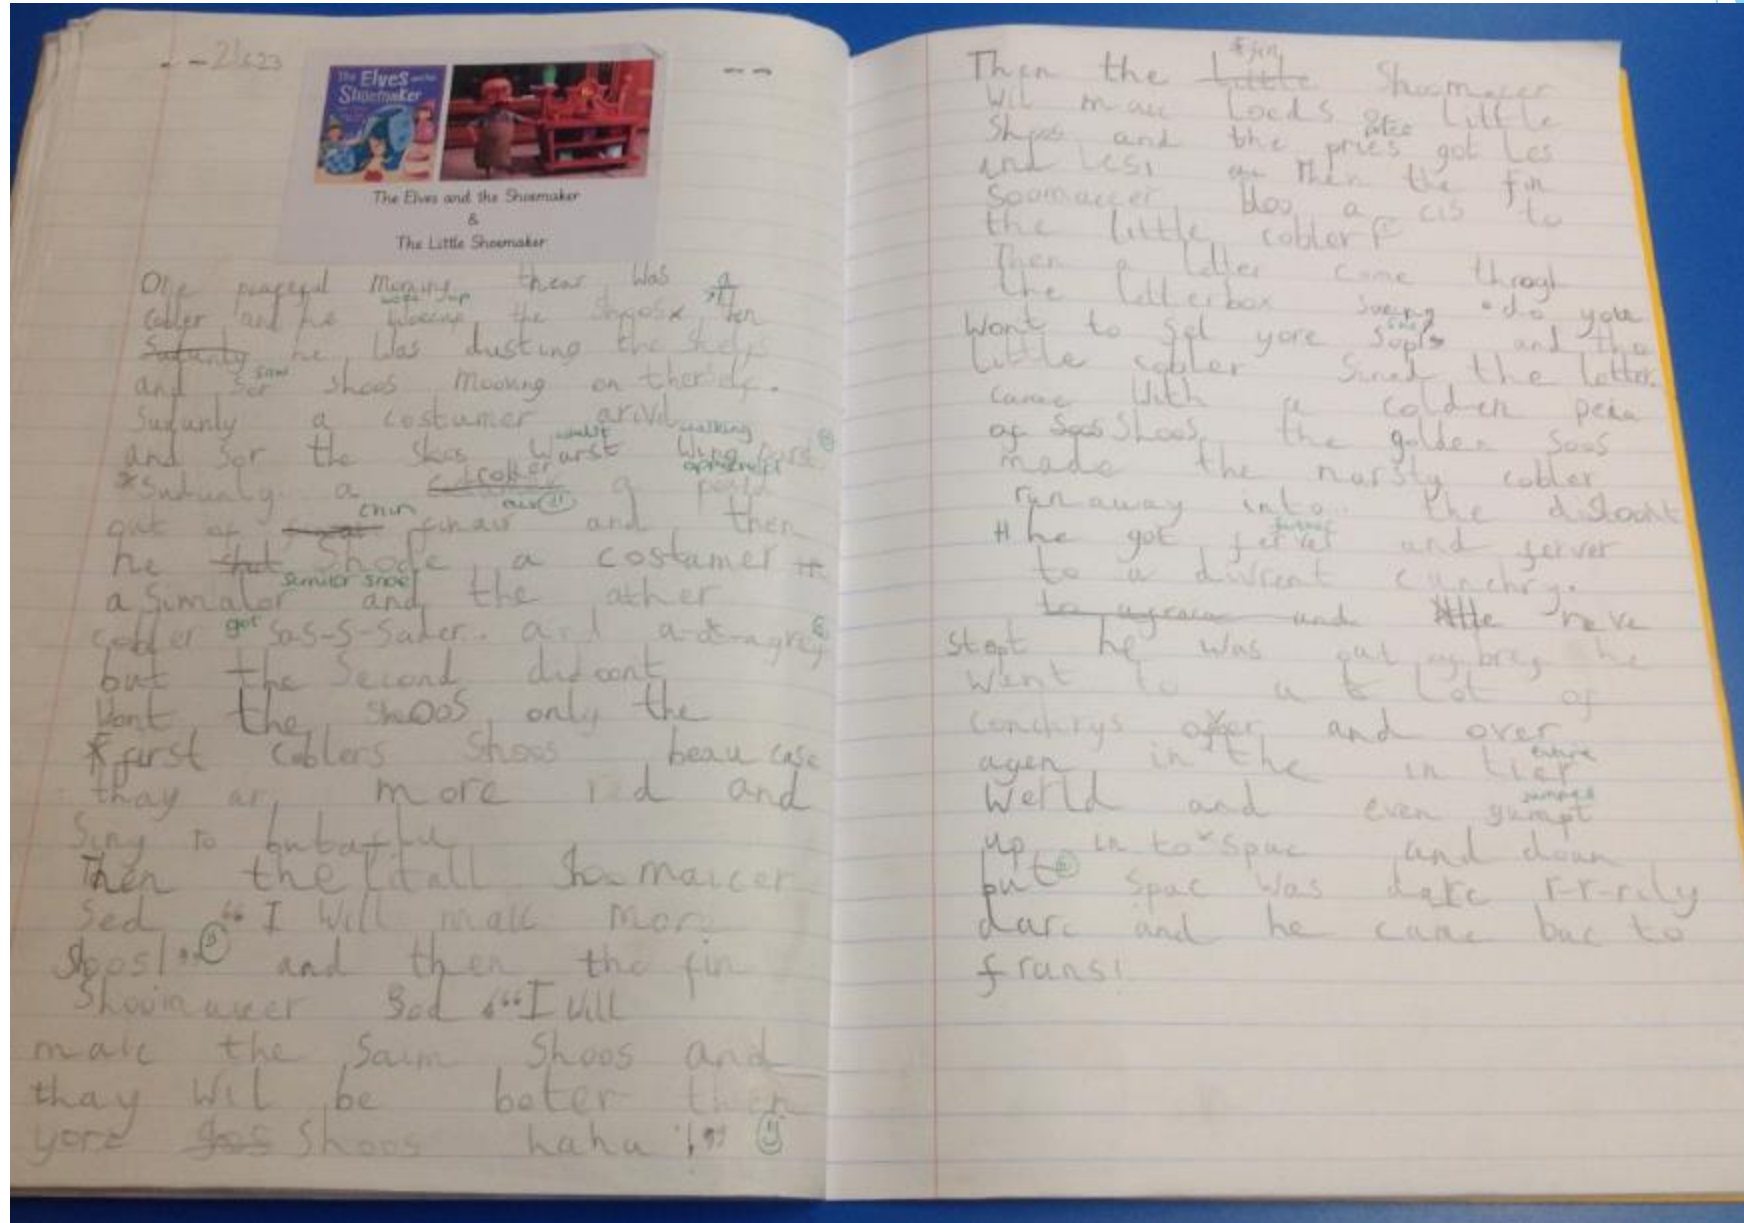 21.6.23
The Elves and the
Shoemaker
The Elves and the Shoemaker
&
The Little Shoemaker
One peaceful morning thear was a
cobler and he woke up the Shoos then
Sudunly he was dusting the shelfs
and sor saw shoos mooving on
Sudunly a costumer
and sor the whilst walking
*Sudunly a cobler a
out of thin air and then
he shode a costumer
a Simalor similar shoe and the other
cobler got Sas-s-Sader.. and a-a-agrey
but the Second did oont
Wont the shOOS only the
first coblers Shoos beau case
thay ar more red and
to
Then the tall Shoomaicer
Sed "I Will maic more
Shoos!" and then the fin
Shoomaicer Sed "I Will
maic the Saim Shoos and
thay Wil be beter then
yore Shoos haha!"
Then the Little fin Shoomaicer
Wil maic loeds of Little
Shoos and the pries price got Les
and Les! Then the fin
Soomaicer blos a cis to
the little cobler!
Then a letter came throgh
the letterbox do you
Wont to Sel yore and the
little cobler Sined the letter.
came With a colden peia
of Shoos the golden Soos
made the narsty cobler
run away into the
he got and ferver
to a difrent cunchry.
and he neve
stopt he was he
Went to a Lot of
conchrys over and over
agen in the in tier entire
Werld and even gumpt jumped
up in to spac and down
but spac was darc r-r-rily
darc and he came bac to
frans!